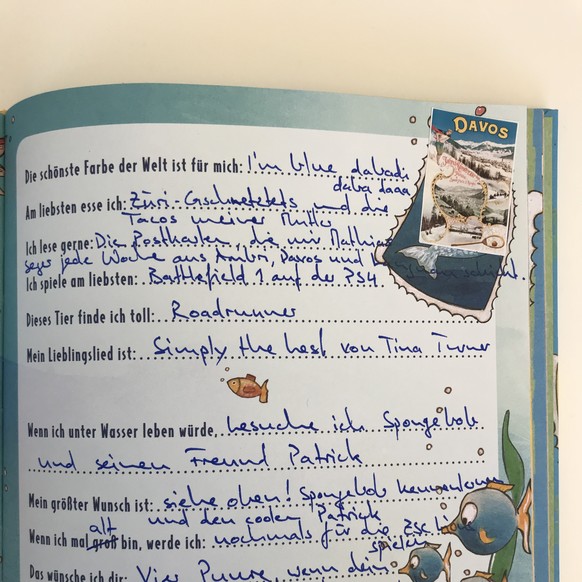 DAVOS
Die schönste Farbe der Welt ist für mich: I'm blue dabadi
daba daaa
Am liebsten esse ich: Züri-Gschnetzlets und die
Tacos meiner Mutter
Ich lese gerne: Die Postkarten, die mir Mathias
Seger jede Woche aus Ambri, Davos und schickt.
Ich spiele am liebsten: Battlefield 1 auf der PS4
Dieses Tier finde ich toll: Roadrunner
Mein Lieblingslied ist: Simply the best von Tina Turner
Wenn ich unter Wasser leben würde, besuche ich Spongebob
und seinen Freund Patrick
Mein größter Wunsch ist: siehe oben! Spongebob kennenlernen
und den coolen Patrick
Wenn ich mal groß alt bin, werde ich: nochmals für die ZSC
spielen
Das wünsche ich dir: Vier Puure, wenn dein